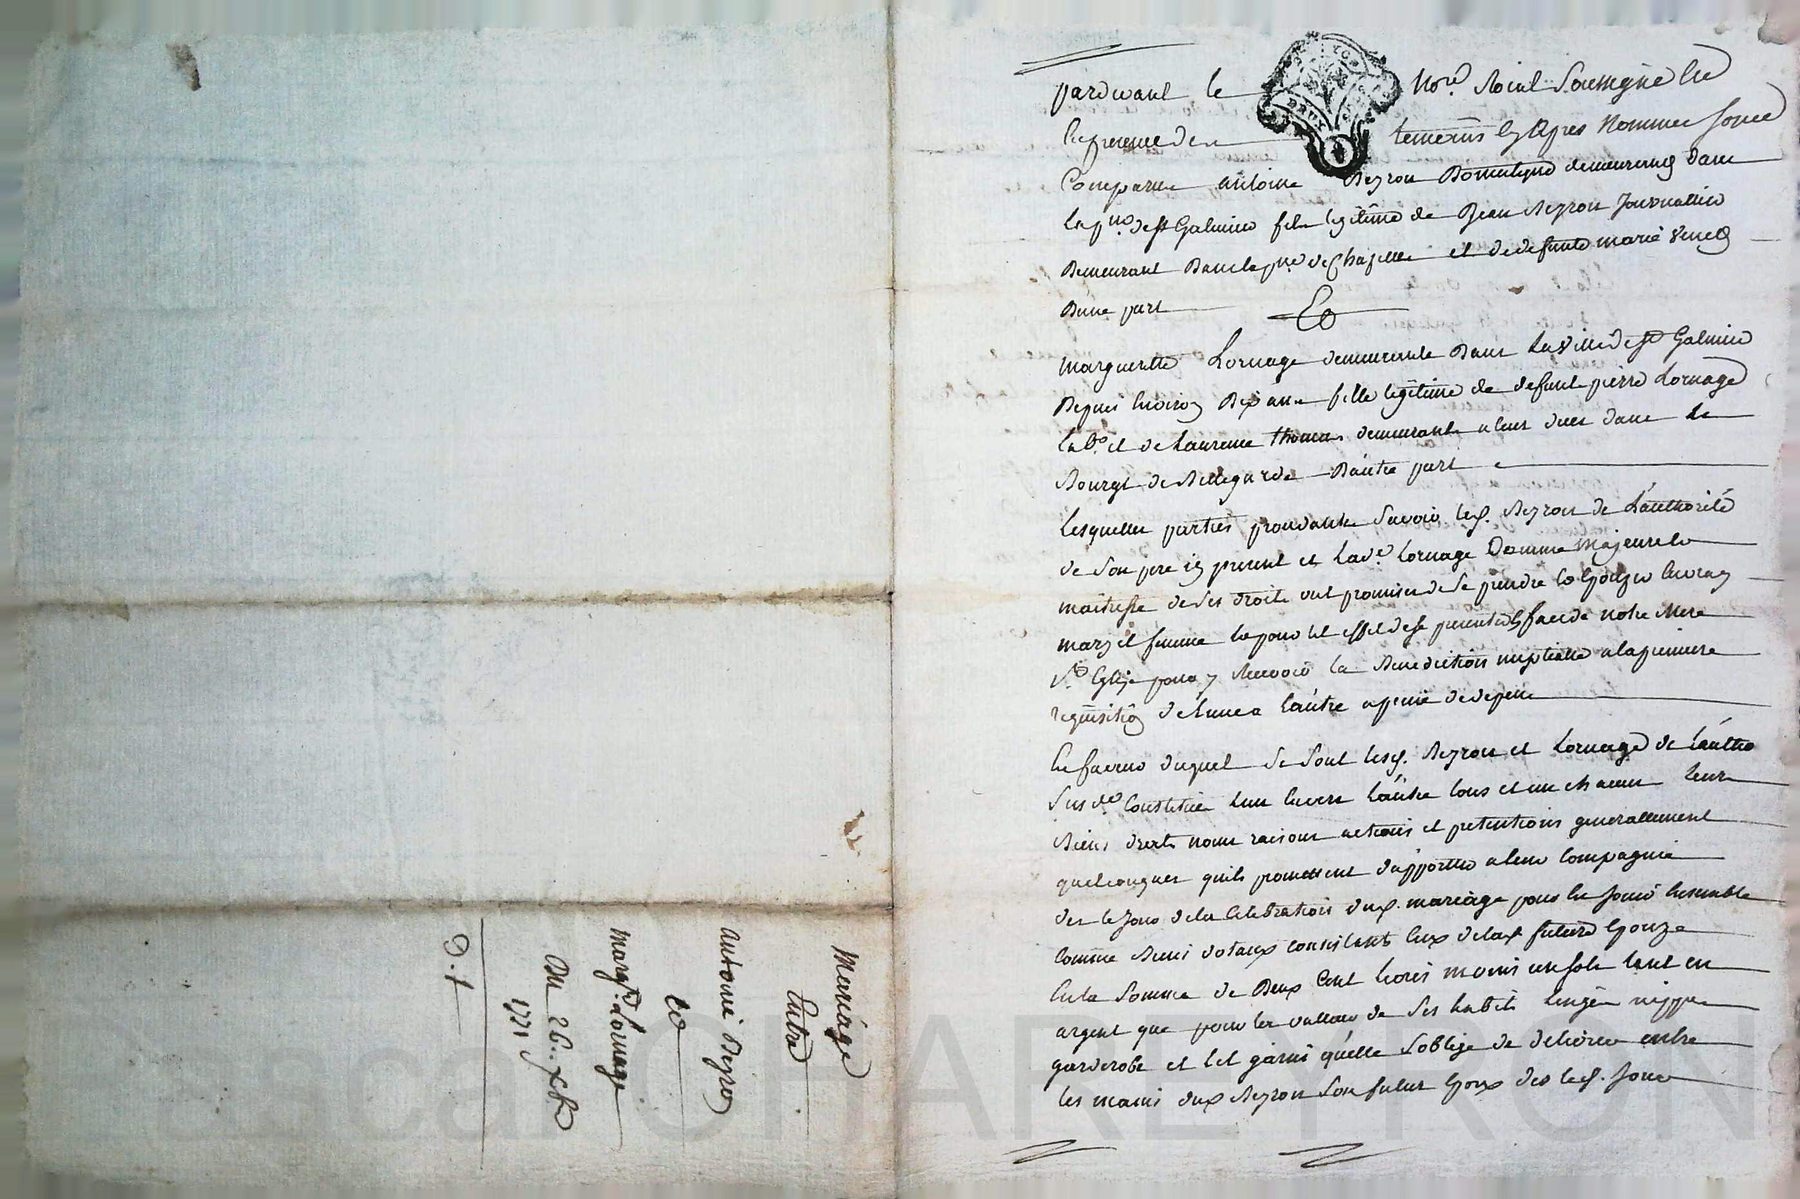 pardevant le Nore. Roial Soussigné en
la presence des temoins cy apres nommes furent
Comparu antoine Peyron Domestique demeurant dans
la pse. de st Galmier fils legitime de Jean Peyron Journallier
Demeurant Dans la pse. de Chazelle et de defunte marie
D'une part Et
marguerite Lornage demeurante Dans La Ville de st Galmier
Depuis Environ Dix ans fille legitime de defunt pierre Lornage
Lab.r et de Laurence thomas demeurants a leur vivant dans le
Bourg de Bellegarde D'autre part
Lesquelles parties procedantes Savoir led. Peyron de L'authorité
de Son pere icy present et Lade. Lornage Comme Majeure et
maitresse de Ses droits ont promis de Se prendre et Epouser En vray
mary et femme et pour cet effet de se presenter En face de notre Mere
Ste Eglise pour y Recevoir la Benediction nuptialle a la premiere
requisition de L'une a L'autre a peine de depens
En faveur duquel Se Sont lesd. Peyron et Lornage de L'autho
Susde. Constitué L'un Envers L'autre tous et un chacun Leurs
Biens droits noms raisons actions et pretentions generallement
quelconques quils promettent d'apporter a leur Compagnie
des le Jour de la Celebration dud. mariage pour En Jouir Ensemble
Comme Biens dotaux consistants Ceux de lad. future Epouze
En la Somme de Deux Cent livres moins un sols tant en
argent que pour la valleur de Ses habits Linges nippes
garderobe et lit garni qu'elle S'oblige de delivrer entre
les mains dud. Peyron Son futur Epoux des led. Jour
Mariage
Entre
antoine Peyron
Et
margte. Lornage
Du 26. xbre
1771
D. 1
DEUX
CHAREYRON